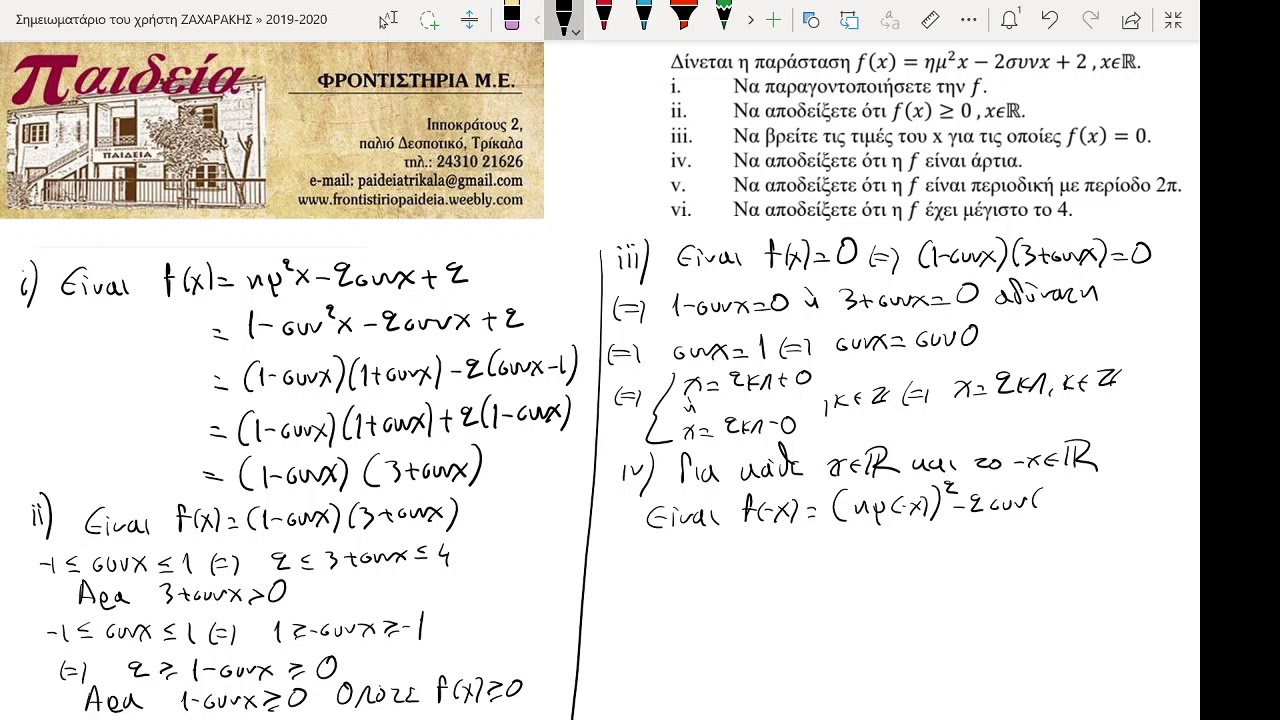 Σημειωματάριο του χρήστη ΖΑΧΑΡΑΚΗΣ » 2019-2020
παιδεία
ΦΡΟΝΤΙΣΤΗΡΙΑ Μ.Ε.
Ιπποκράτους 2,
παλιό Δεσποτικό, Τρίκαλα
τηλ.: 24310 21626
e-mail: paideiatrikala@gmail.com
www.frontistiriopaideia.weebly.com
ΠΑΙΔΕΙΑ
Δίνεται η παράσταση f(x) = ημ²x − 2συνx + 2 , xϵℝ.
i. Να παραγοντοποιήσετε την f.
ii. Να αποδείξετε ότι f(x) ≥ 0 , xϵℝ.
iii. Να βρείτε τις τιμές του x για τις οποίες f(x) = 0.
iv. Να αποδείξετε ότι η f είναι άρτια.
v. Να αποδείξετε ότι η f είναι περιοδική με περίοδο 2π.
vi. Να αποδείξετε ότι η f έχει μέγιστο το 4.
i) Είναι f(x)= ημ²x-2συνx+2
= 1-συν²x-2συνx+2
= (1-συνx)(1+συνx)-2(συνx-1)
= (1-συνx)(1+συνx)+2(1-συνx)
= (1-συνx) (3+συνx)
ii) Είναι f(x)=(1-συνx)(3+συνx)
-1≤ συνx ≤1 (=) 2≤3+συνx≤4
Άρα 3+συνx>0
-1≤ συνx ≤1 (=) 1≥-συνx≥-1
(=) 2≥1-συνx≥0
Άρα 1-συνx≥0 Οπότε f(x)≥0
iii) Είναι f(x)=0 (=) (1-συνx)(3+συνx)=0
(=) 1-συνx=0 ή 3+συνx=0 αδύνατη
(=) συνx=1 (=) συνx=συν0
(=) x=2κπ+0
ή , κ∈ℤ (=) x=2κπ, κ∈ℤ
x=2κπ-0
iv) Για κάθε x∈ℝ και το -x∈ℝ
Είναι f(-x)=(ημ(-x))²-2συν(